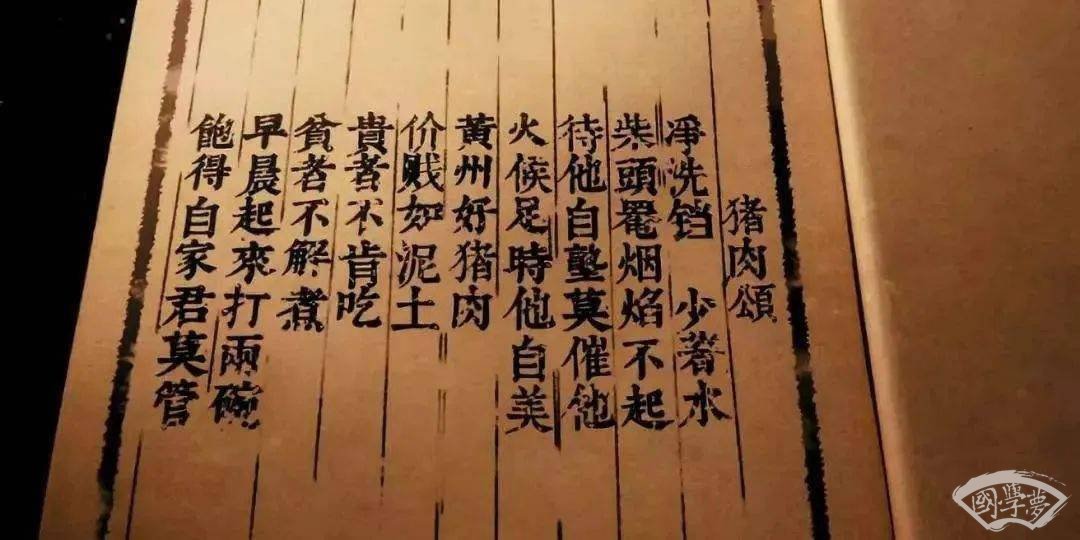 猪肉頌
淨洗铛 少著水
柴頭罨烟焰不起
待他自塾莫催他
火候足時他自美
黃州好猪肉
价贱如泥土
貴者不肯吃
貧者不解煮
早晨起來打兩碗
飽得自家君莫管
國學夢